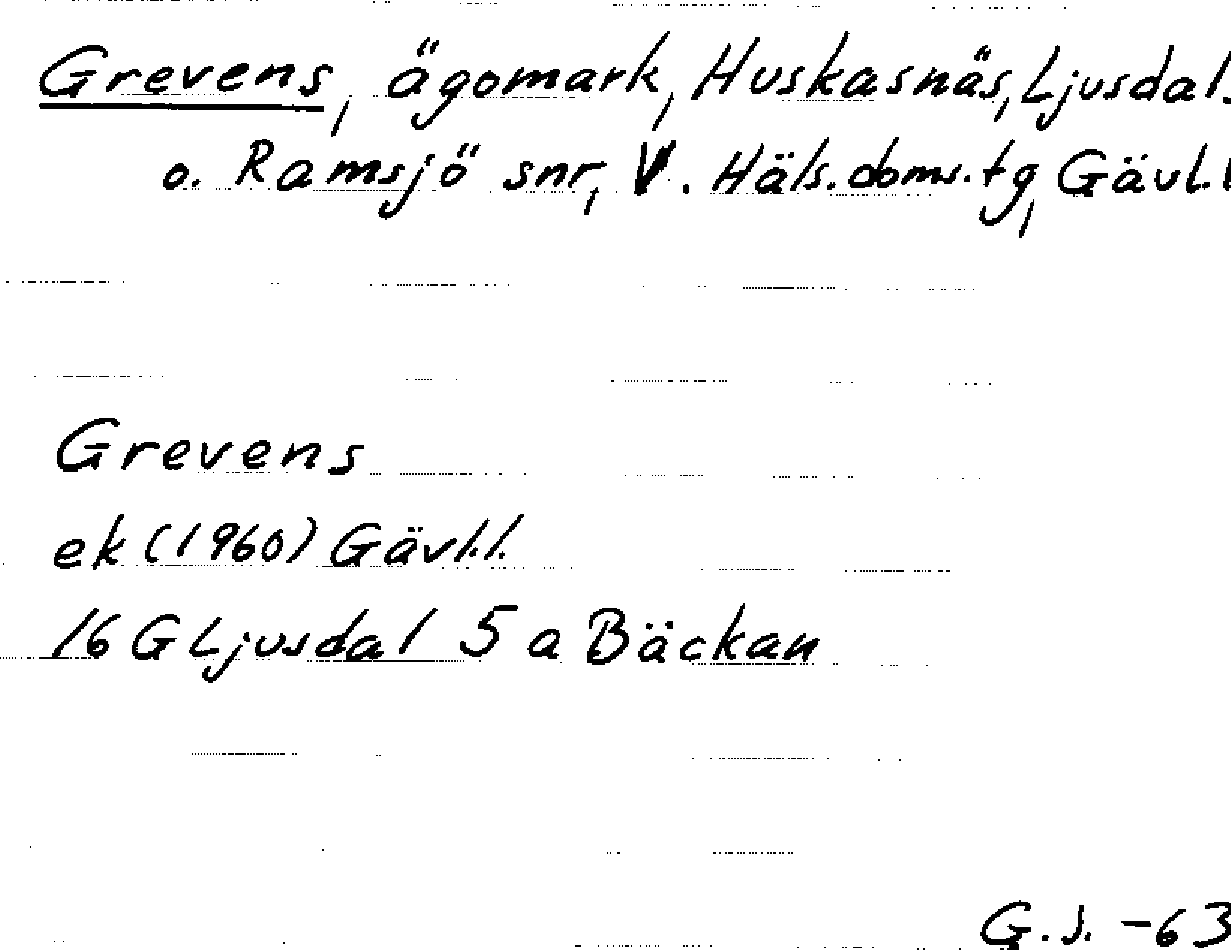 Grevens, ägomark, Huskasnäs, Ljusdals
o. Ramsjö snr, V. Häls. doms.tg, Gävl.l
Grevens
ek (1960) Gävl.l.
16 G Ljusdal 5 a Bäckan
G.J. -63